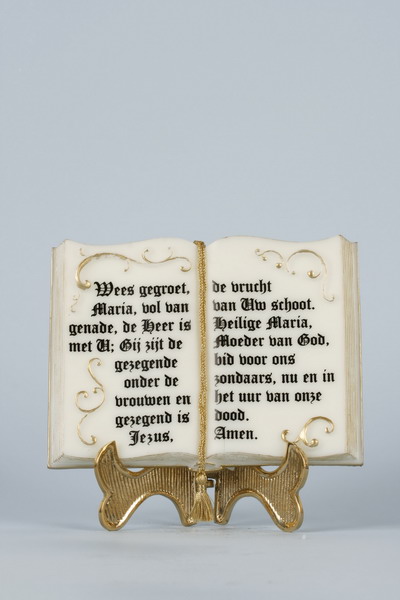 Wees gegroet,
Maria, vol van
genade, de Heer is
met U; Gij zijt de
gezegende
onder de
vrouwen en
gezegend is
Jezus,
de vrucht
van Uw schoot.
Heilige Maria,
Moeder van God,
bid voor ons
zondaars, nu en in
het uur van onze
dood.
Amen.